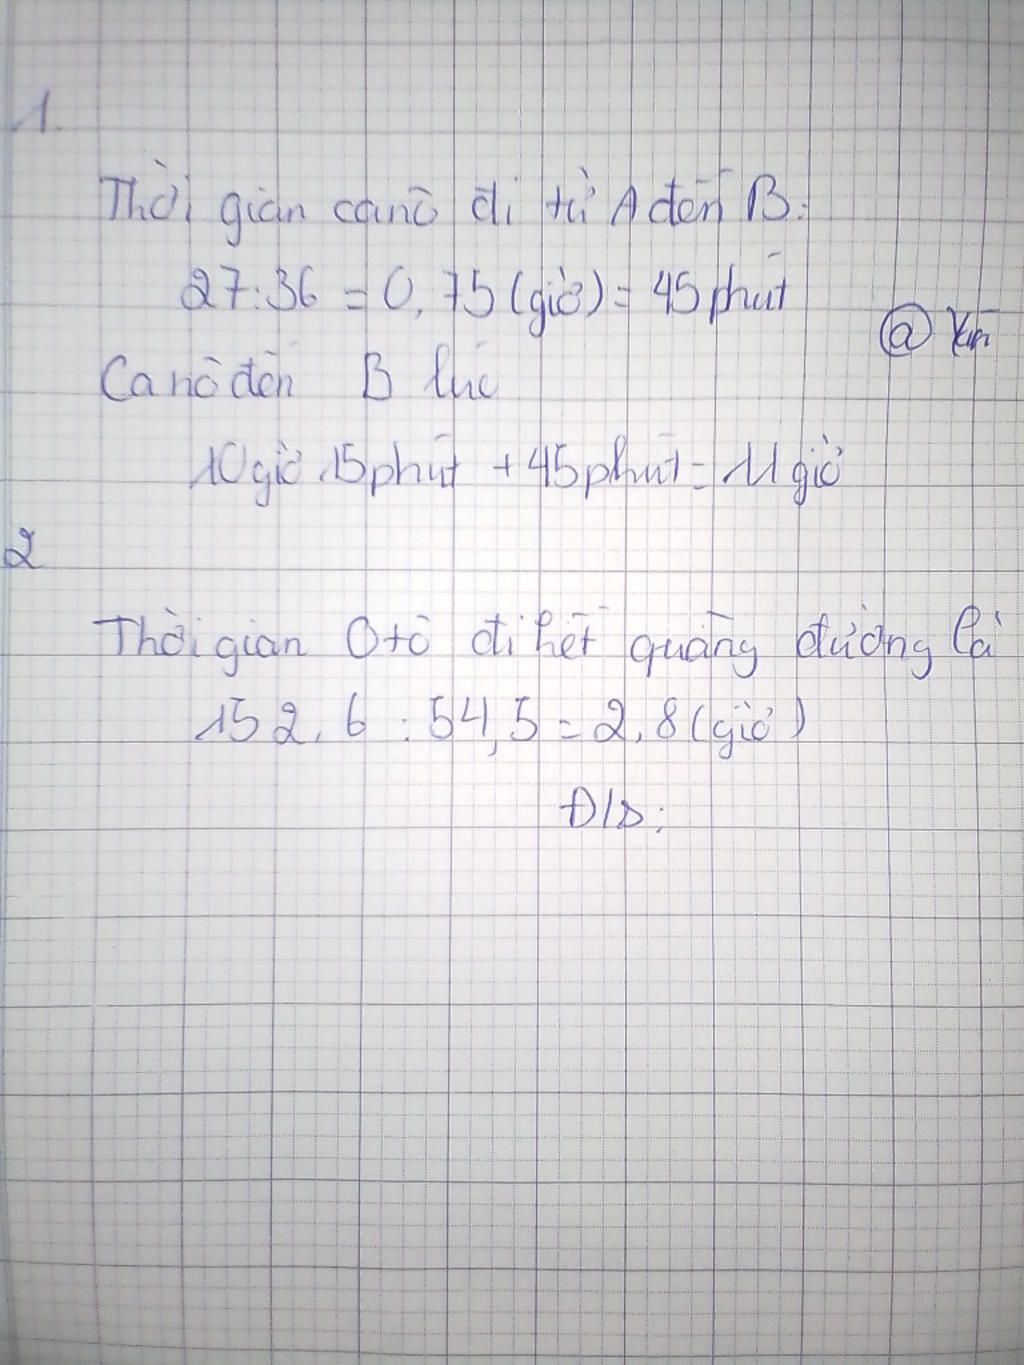 1.
Thời gian canô đi từ A đến B:
27:36 = 0,75 (giờ) = 45 phút
@ Kin
Ca nô đến B lúc
10 giờ 15 phút + 45 phút = 11 giờ
2
Thời gian Ô tô đi hết quãng đường là
152,6 : 54,5 = 2,8 (giờ)
Đ/S: